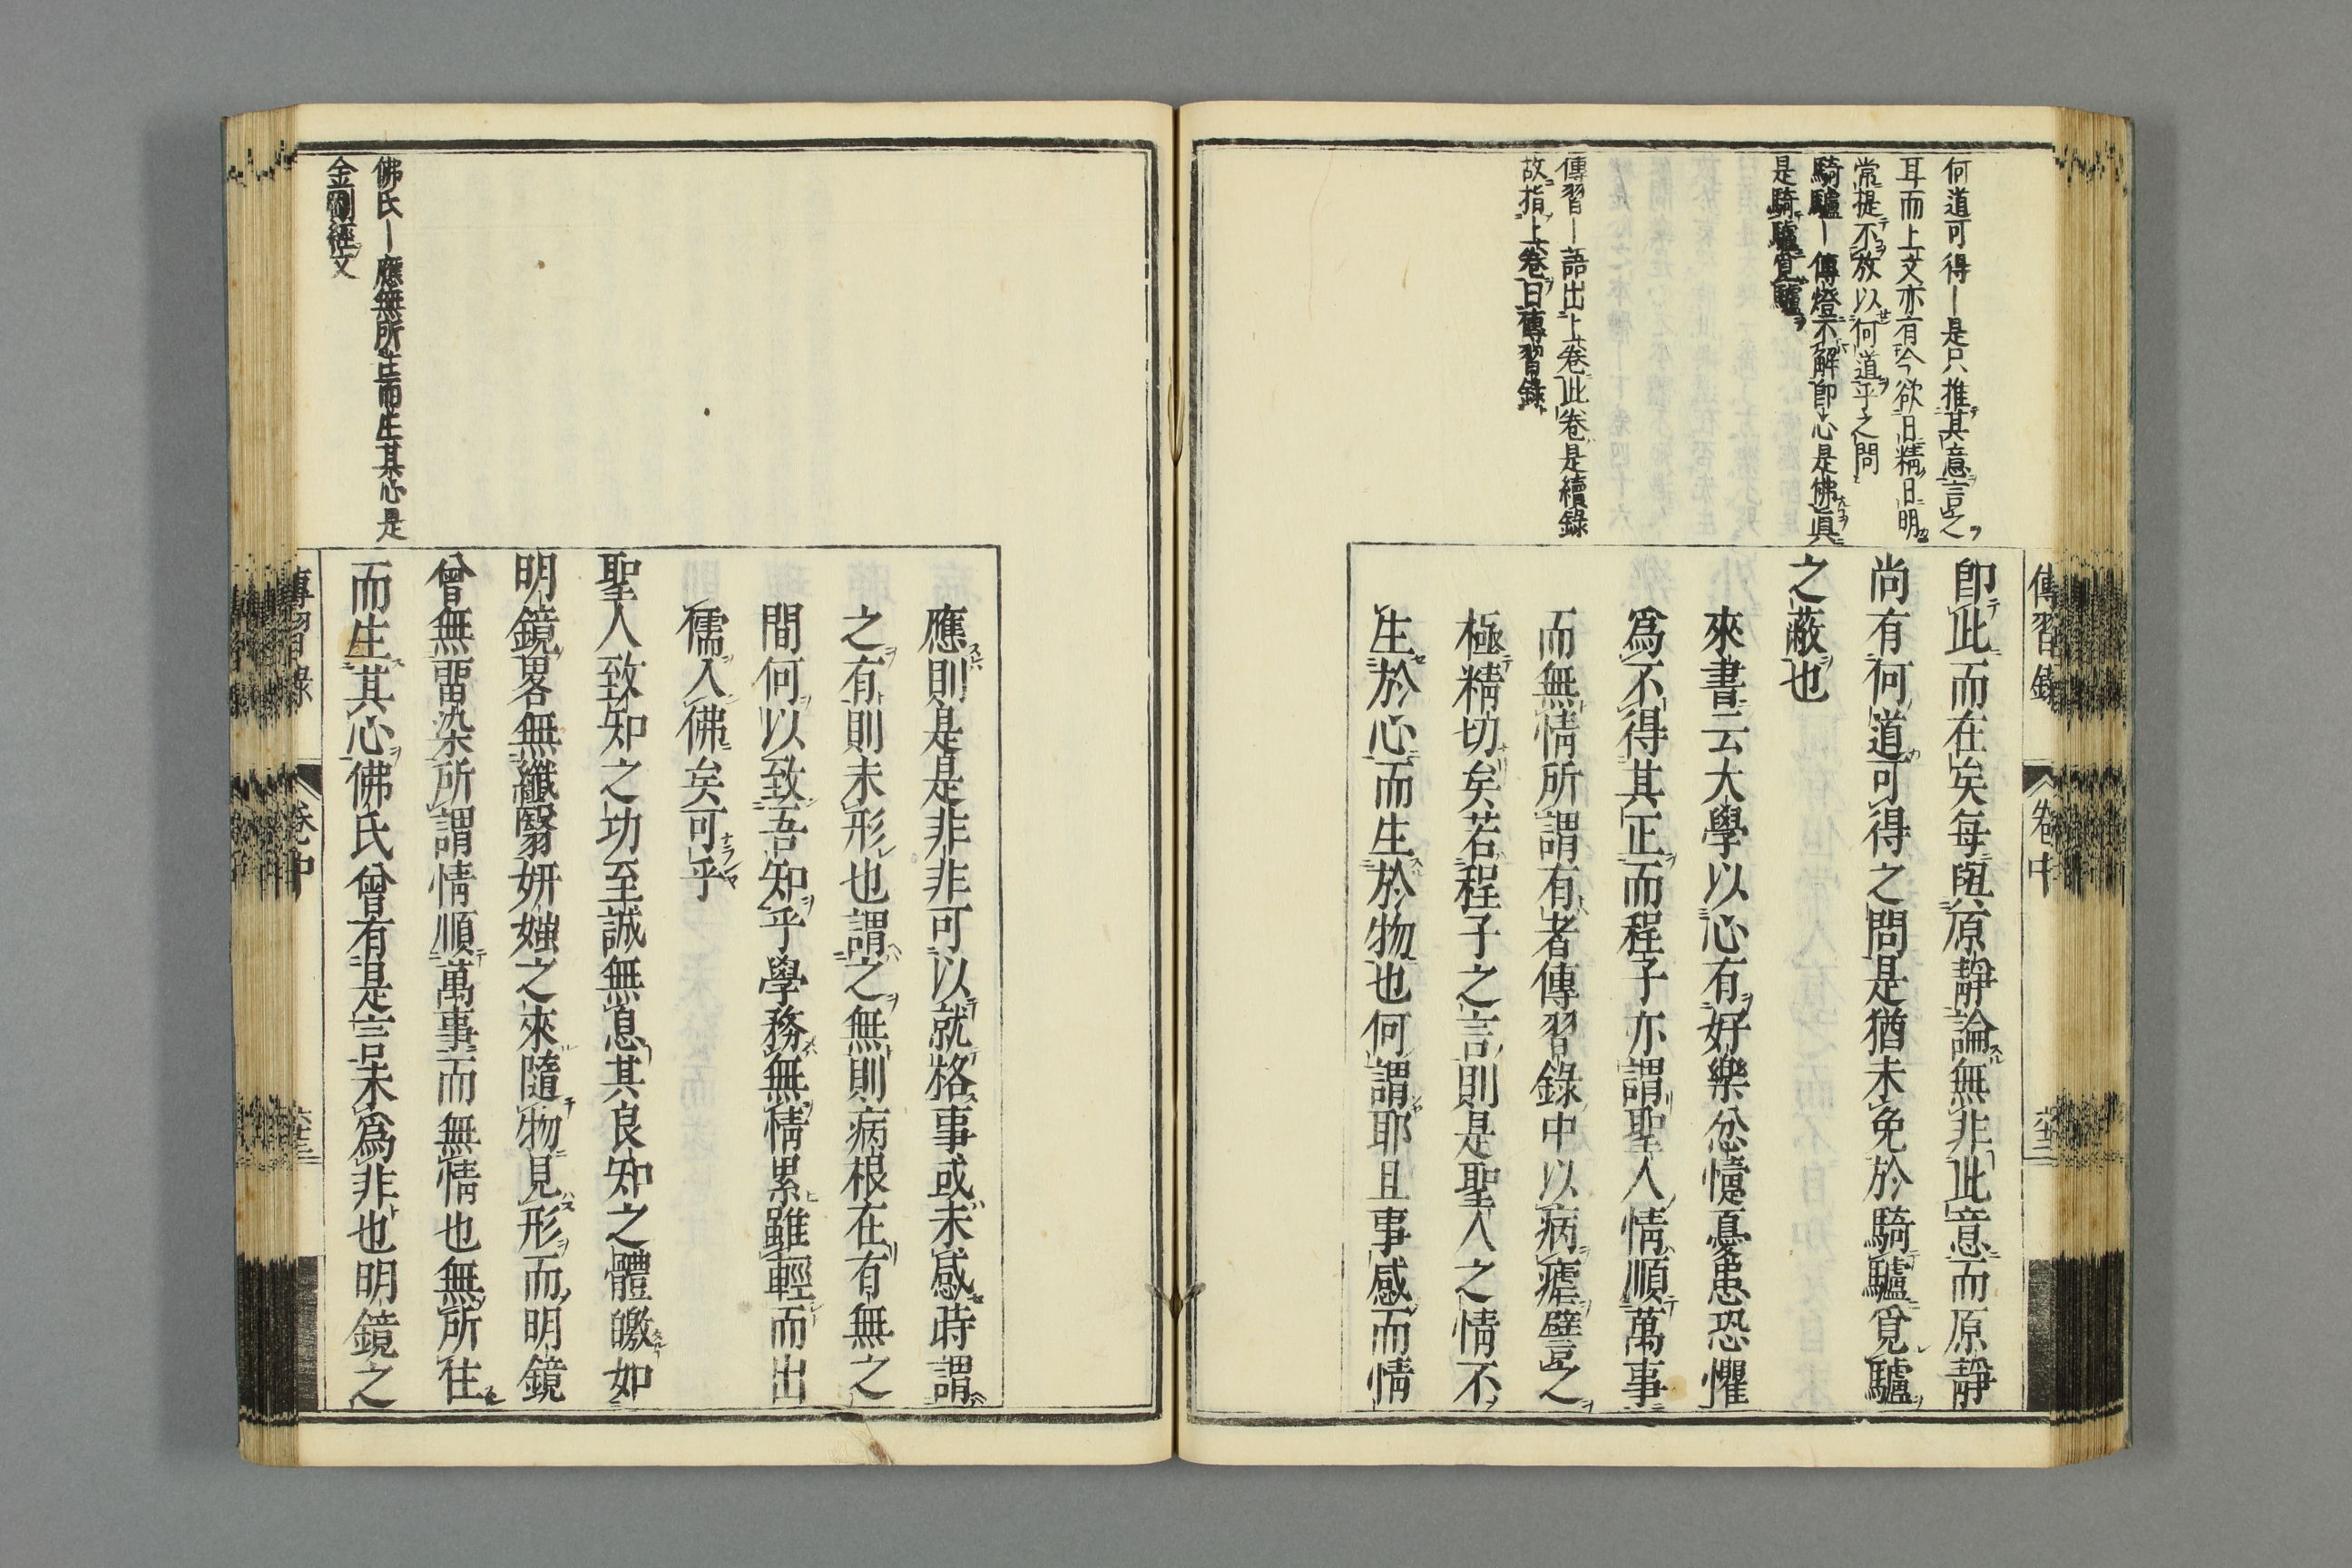 何道可得｜是只推其意言之
耳而上文亦有今欲日精日明
常提不放以何道乎之問
騎驢｜傳燈不解卽心是佛眞
是騎驢覓驢
傳習｜語出上卷此卷是續錄
故指上卷曰傳習錄
傳習錄
卷中
卽此而在矣每與原靜論無非此意而原靜
尚有何道可得之問是猶未免於騎驢覓驢
之蔽也
來書云大學以心有好樂忿懥憂患恐懼
爲不得其正而程子亦謂聖人情順萬事
而無情所謂有者傳習錄中以病瘧譬之
極精切矣若程子之言則是聖人之情不
生於心而生於物也何謂耶且事感而情
應則是是非非可以就格事或未感時謂
之有則未形也謂之無則病根在有無之
間何以致吾知乎學務無情累雖輕而出
儒入佛矣可乎
聖人致知之功至誠無息其良知之體皦如
明鏡畧無纖翳妍媸之來隨物見形而明鏡
曾無畱染所謂情順萬事而無情也無所住
而生其心佛氏曾有是言未爲非也明鏡之
佛氏｜應無所住而生其心是
金剛經文
傳習錄
卷中